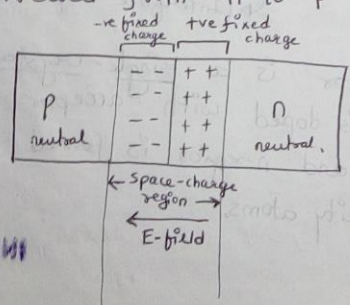 -ve fixed charge
+ve fixed charge
- - + +
- - + +
- - + +
- - + +
p
neutral
n
neutral.
Space-charge
region
E-field